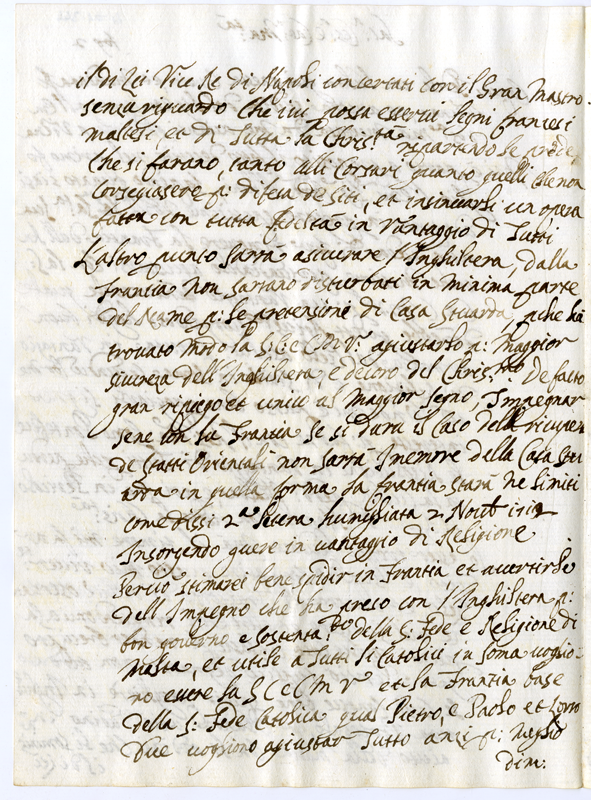 il di Lei Vice Re di Napoli concertati con il Gran Mastro
senza riguardo che ivi possa esservi legni francesi
maltesi et di Tutta la Christ.ta repartendo le prede
che si farano, tanto alli Corsari quanto quelli che non
Corsegiasere p: difesa de siti, et insinuarli un opera
fatta con tutta fedeltà in vantaggio di Tutti
L'altro punto sarrà asicurare l'Inghiltera, dalla
Francia non sarrano disturbati in minima parte
del Reame p: le pretensione di Casa Stuarda, p che ha
trovato modo la S: C: e C: M: V: agiustarlo p: maggior
siureza dell'Inghiltera, e decoro del Chris.mo De facto
gran ripiego et unico al maggior segno, Impegnar
sene con la Francia se si darà il Caso della
de Statti Orientali non sarrà Imemore della Casa Stu
arda in quella forma la Francia starà ne limiti
come dissi 2.a letera hunghiata 2 Novb 1712
Insorgendo guere in vantaggio di Religione
Perciò stimarei bene spidir in Francia et avertirli
dell Impegno che ha preso con l'Inghiltera p:
bon governo e sostenta.to della S: Fede e Religione di
Malta, et utile a Tutti li Catolici in soma voglio
no essere la S C e C M V et la Francia base
della S: Fede Catolica qual Pietro, e Paolo et loro
Due vogliono agiustar Tutto anzi p: meglio
dim: